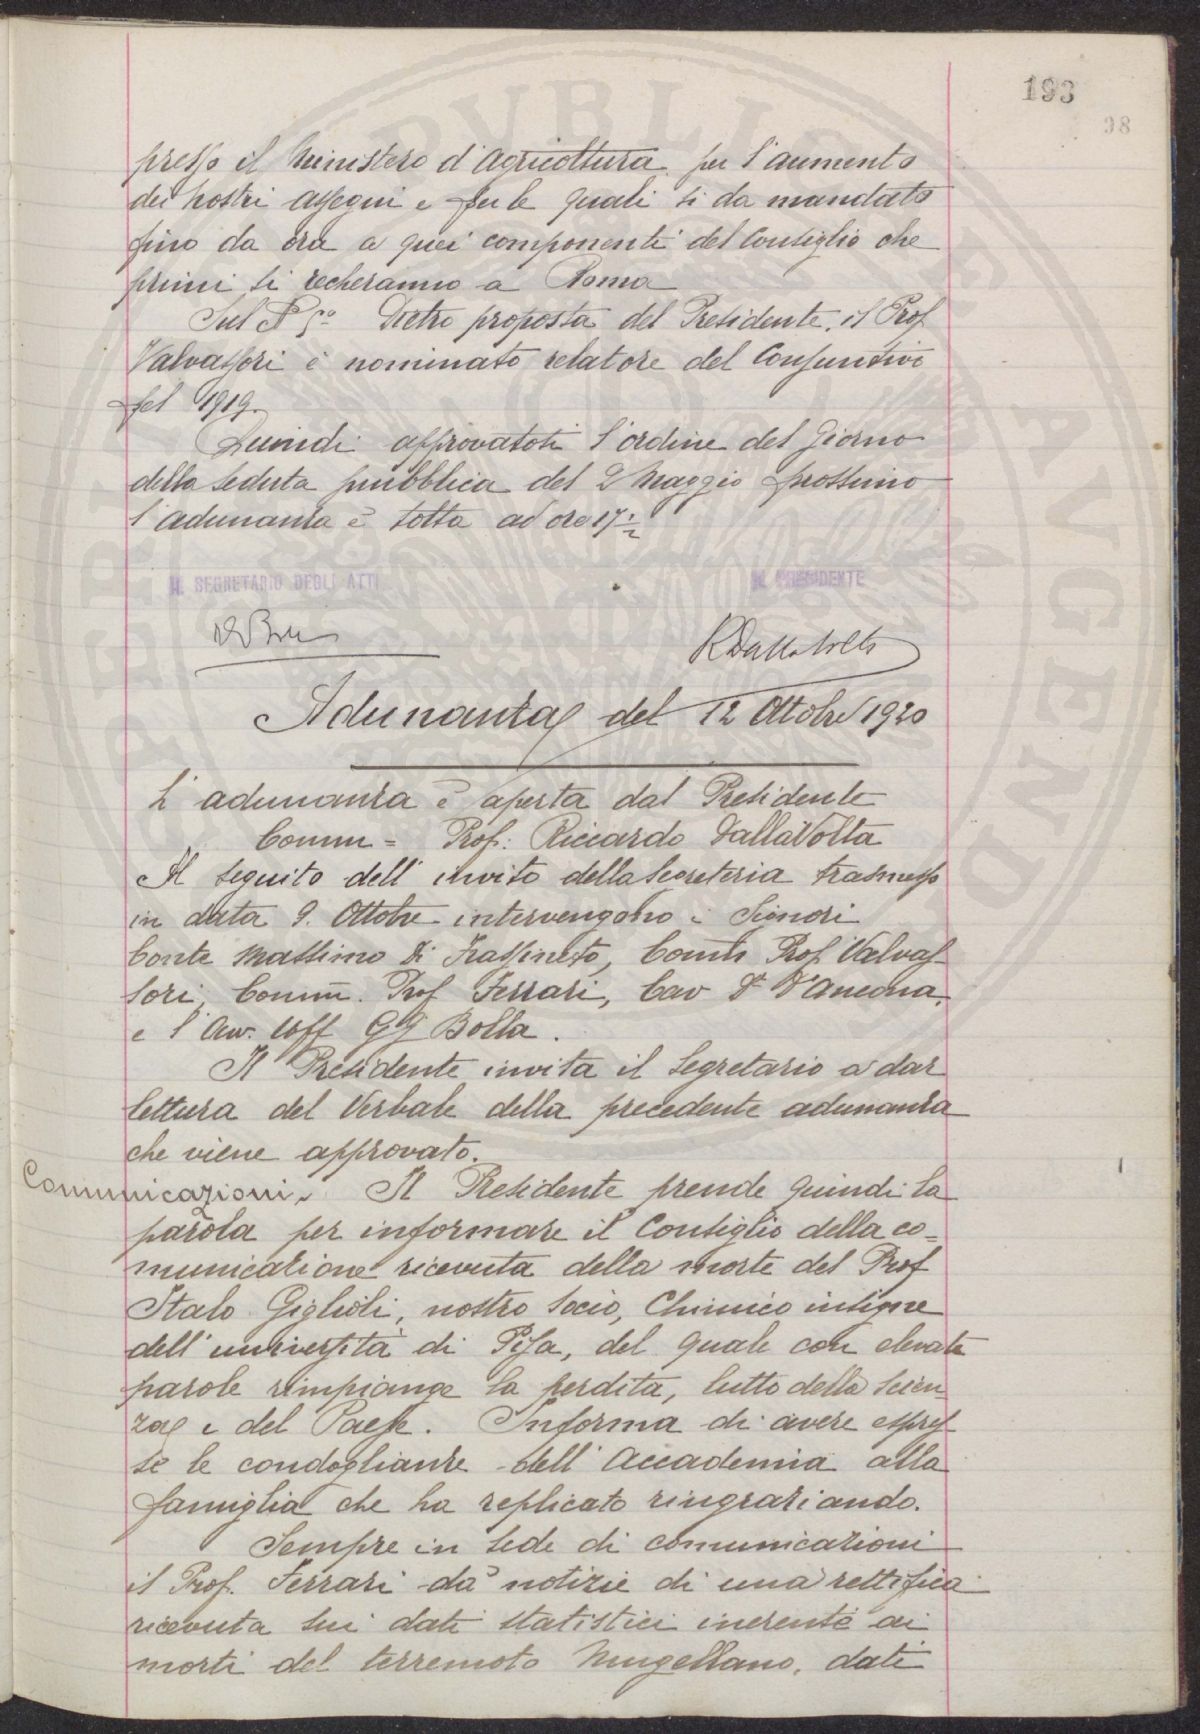 193
98
presso il Ministero d'Agricoltura per l'aumento
dei nostri assegni e per le quali si da mandato
fino da ora a quei componenti del Consiglio che
primi si recheranno a Roma
Sul N 5º Dietro proposta del Presidente, il Prof
Valvassori è nominato relatore del Consuntivo
pel 1919.
Quindi approvatoti l'ordine del Giorno
della seduta pubblica del 2 Maggio prossimo
l'adunanza è tolta ad ore 17 1/2
IL SEGRETARIO DEGLI ATTI IL PRESIDENTE
Adunanza del 12 Ottobre 1920
L'adunanza è aperta dal Presidente
Comm = Prof: Riccardo DallaVolta
Al seguito dell'invito della Segreteria trasmesso
in data 9. Ottobre intervengono i Signori
Conte Massimo Di Frassineto, Comm Prof Valvas-
sori, Comm. Prof Ferrari, Cav Dr D'Ancona,
e l'Avv. Uff GG Bolla.
Il Presidente invita il Segretario a dar
lettura del Verbale della precedente adunanza
che viene approvato.
Comunicazioni. Il Presidente prende quindi la
parola per informare il Consiglio della co=
municazione ricevuta della morte del Prof
Italo Giglioli, nostro Socio, Chimico insigne
dell'università di Pisa, del quale con elevate
parole rimpiange la perdita, lutto della Scien-
za e del Paese. Informa di avere espres-
se le condoglianze dell'Accademia alla
famiglia che ha replicato ringraziando.
Sempre in sede di comunicazioni
il Prof. Ferrari dà notizie di una rettifica
ricevuta sui dati statistici inerente ai
morti del terremoto Mugellano, dati